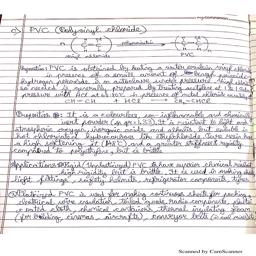 c) PVC (Polyvinyl chloride)
vinyl chloride PVC
Preparation: PVC is obtained by heating a water emulsion vinyl chloride
in presence of a small amount of benzoyl peroxide or
hydrogen peroxide in an autoclave under pressure. Vinyl chloride
so needed is generally prepared by treating acetylene at 1 to 1.5
pressure with HCl at 60°C in presence of metal chloride catalyst
CH=CH + HCl → CH2=CHCl
Properties: It is a colourless, non-inflammable and chemically
inert powder. It is resistant to light and
atmospheric oxygen, inorganic acids and alkalis, but soluble in
hot chlorinated hydrocarbons
a high softening and a greater stiffness & rigidity
compared to polyethylene, but is brittle.
Applications: Rigid (Unplasticized) PVC to have superior chemical resistance
high rigidity but is brittle. It is used in making sheets
light fittings, safety helmets, refrigerator components, tyres
Plasticized PVC is used for making continuous sheets for packing
electrical wire insulation, radio components
coated cloth, chemical containers, thermal insulating foam
(for building, cinemas, aircrafts), conveyor belts
Scanned by CamScanner